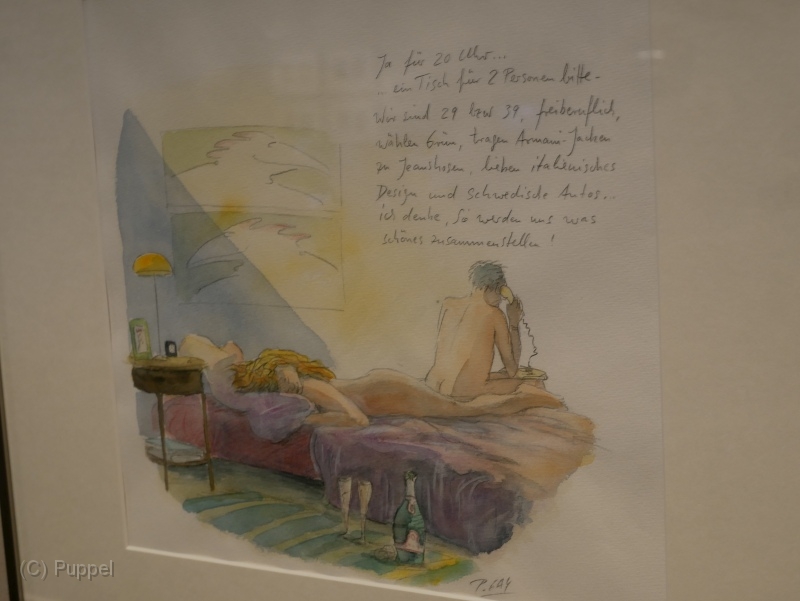 Ja für 20 Uhr...
.. ein Tisch für 2 Personen bitte -
Wir sind 29 bzw 39, freiberuflich,
wählen Grün, tragen Armani-Jacken
zu Jeanshosen, lieben italienisches
Design und schwedische Autos...
ich denke, Sie werden uns was
schönes zusammenstellen!
P. GAY
(C) Puppel